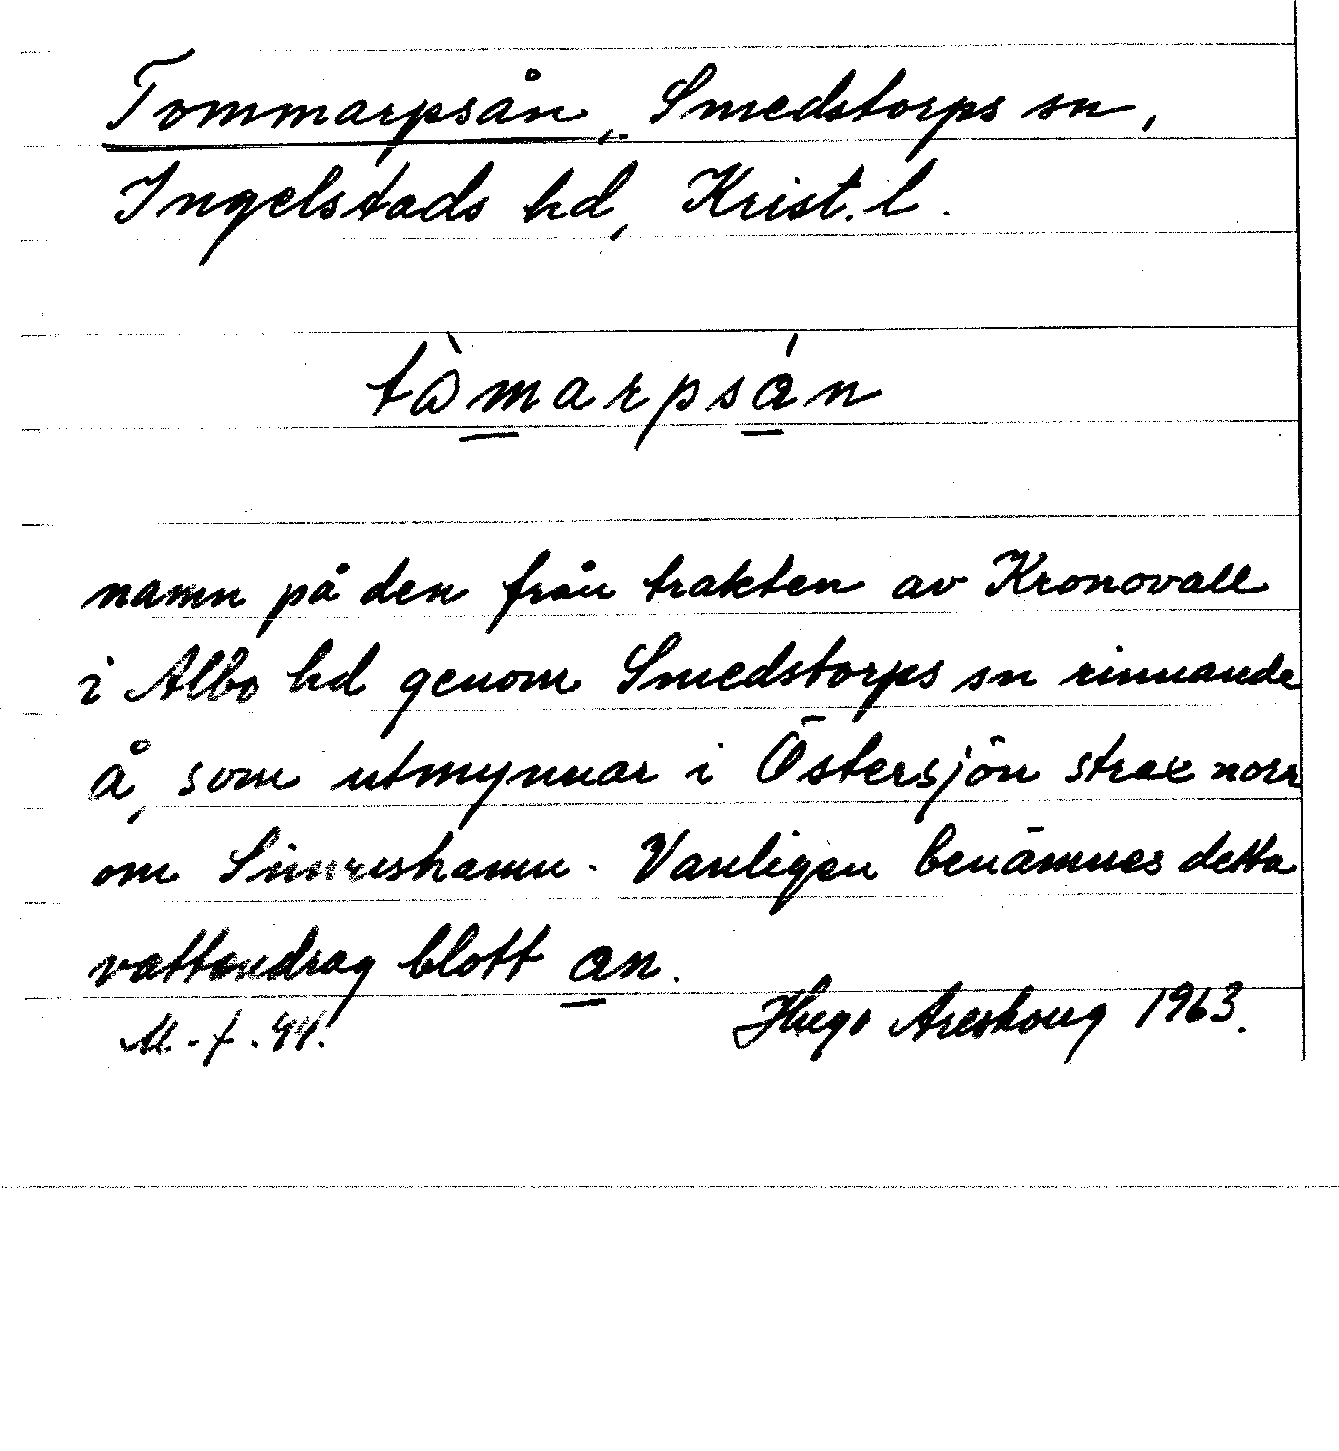 Tommarpsån, Smedstorps sn,
Ingelstads hd, Krist. l.
tòmarpsán
namn på den från trakten av Kronovall
i Albo hd genom Smedstorps sn rinnande
å, som utmynnar i Östersjön strax norr
om Simrishamn. Vanligen benämnes detta
vattendrag blott an.
M. - f. 44. Hugo Areskoug 1963.